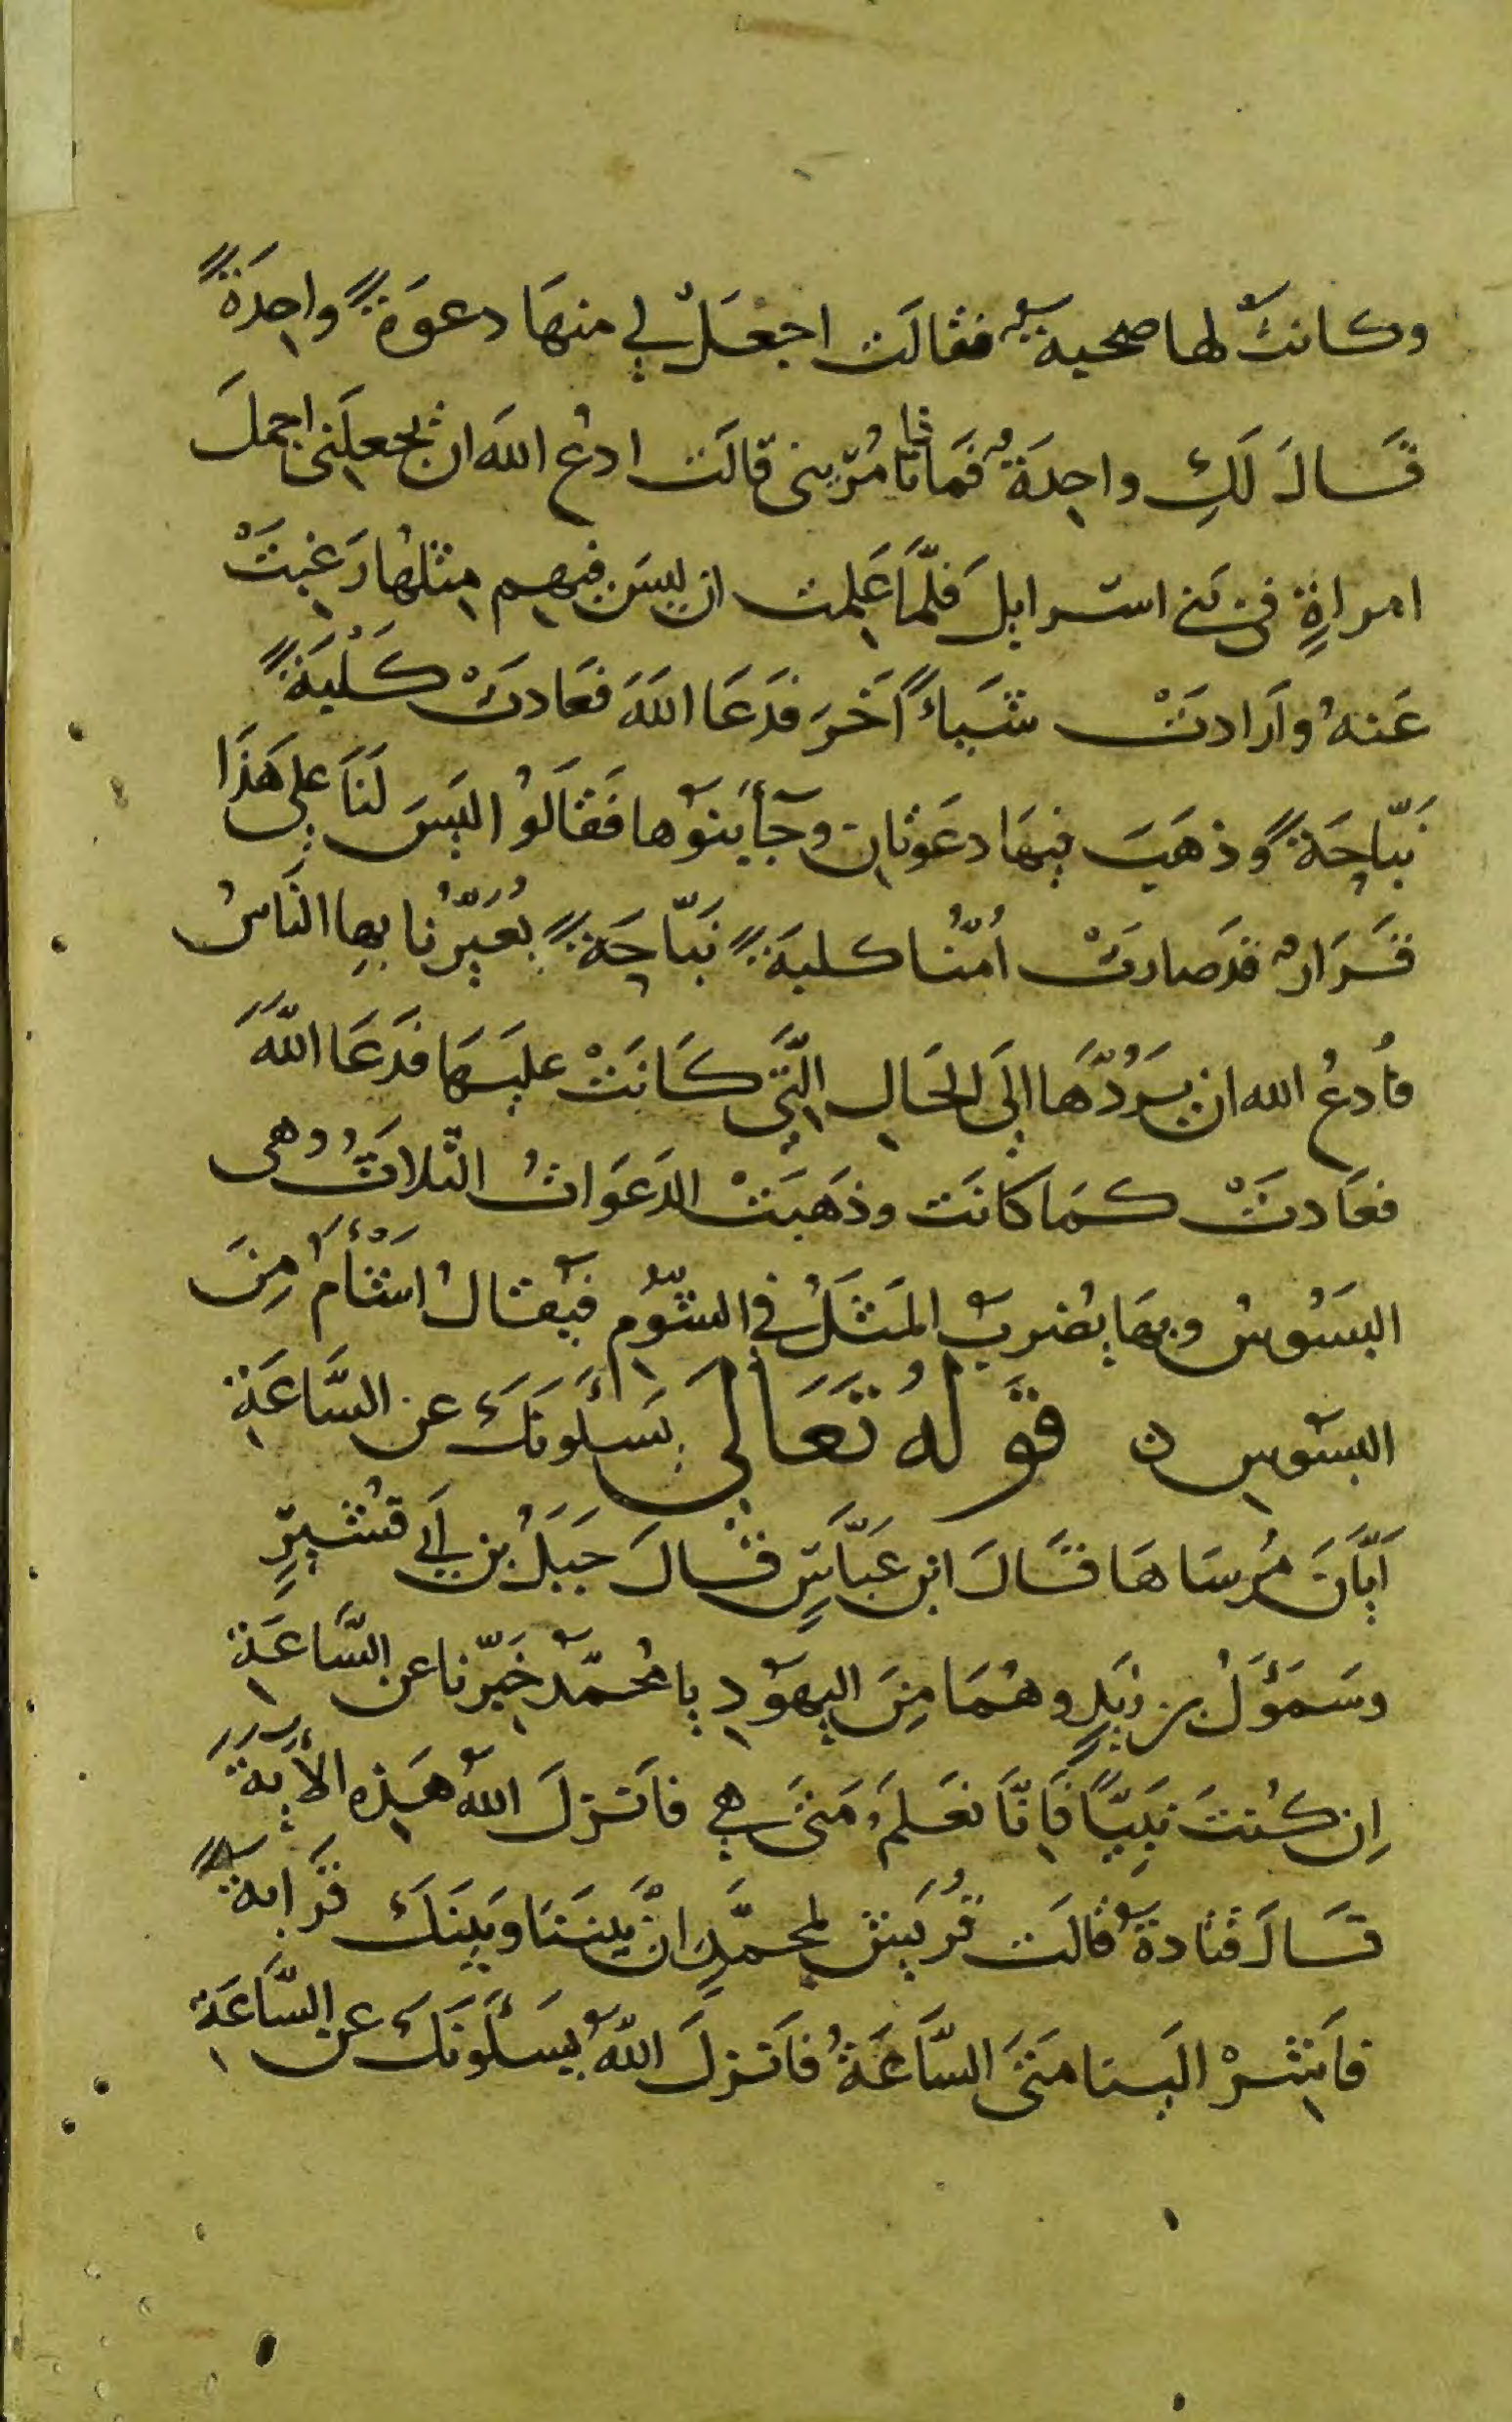 وكانت لها صحبةٌ فقالت اجعَلْ لي منهَا دعوَةً واحِدَةً
قَالَ لَكِ واحِدَةٌ فَمَا تَامُرِيني قالَت ادعُ اللهَ ان يجعلَني اجملَ
امراةٍ في بَني اسرايلَ فَلَمَّا عَلِمت ان ليسَ فيهِم مِثلُها رَغِبَتْ
عَنهُ وَاَرادَتْ شَيـاً اَخَرَ فَدَعَا اللهَ فعَادَتْ كَلْبَةً
نَبَّاحَةً وذهَبَت فيهَا دعَوَتانِ وجَأ بَنُوها فَقَالُوا ليسَ لَنَا على هَذَا
قَرَارٌ قد صارَتْ اُمُّنَا كلبَةً نَبَّاحَةً يُعَيِّرُنا بِها النَّاسُ
فَادعُ الله ان يَرُدَّهَا اِلَى الحَالِ الَّتِي كَانَتْ عليَهَا فَدَعَا اللهَ
فعَادَتْ كَمَا كانَت وذَهَبَتْ الدَعَوَاتُ الثَّلاثُ وهي
البَسُوسُ وبِهَا يُضرَبُ المَثَلُ في الشُّومِ فيُقالُ اَشْأَمُ مِنَ
البسُوسِ ٥ قَولُهُ تَعَالَى يَسـَٔلُونَكَ عن السَّاعَةِ
اَيَّانَ مُرسَاهَا قَالَ ابن عَبَّاسٍ قَالَ جَبَلُ بن اَبي قُشَيرٍ
وسَمَؤَلُ بن زَيدٍ وهُمَا مِنَ اليهُودِ يا مُحمّدُ خَبِّرنا عن السَّاعَةِ
اِن كُنتَ نَبِيًّا فَاِنَّا نَعلَمُ مَتَى هي فانَزلَ اللهُ هَذِه الأيَةَ
قَالَ قتادةُ قالَت قُرَيش لمحمَّدٍ اِنْ بَينَنَا وبَينَكَ قَرَابةً
فاَسِرْ الَينا مَتَى السَّاعَةُ فاَنزلَ اللهُ يَسـَٔلُونَكَ عن السَّاعَةِ